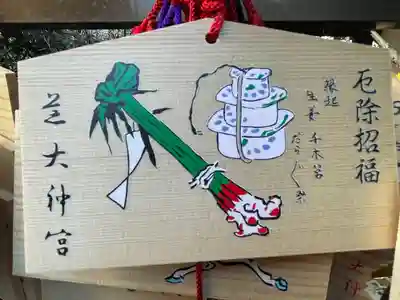 厄除招福
縁起
生姜 千木筥
だらだら祭
芝大神宮